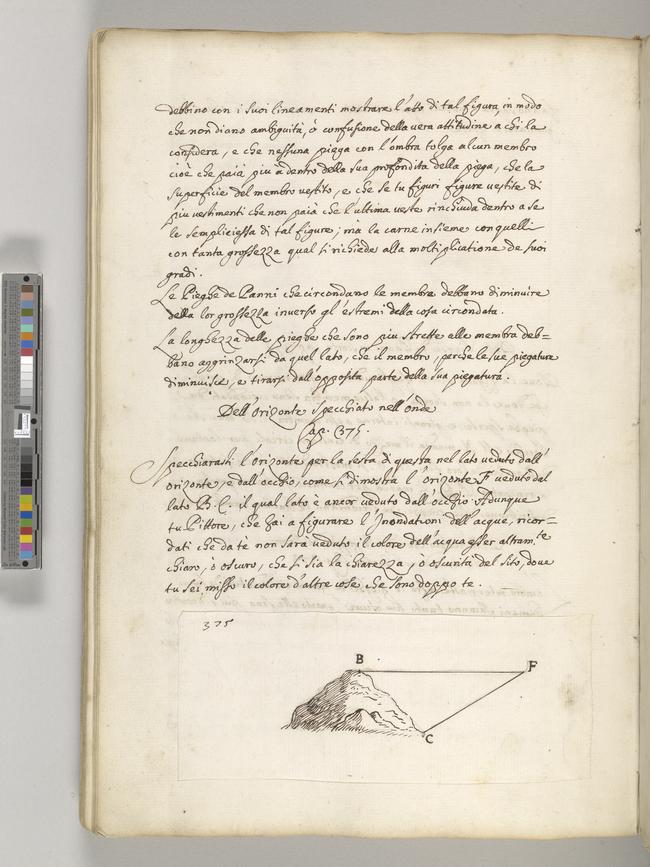 debbino con i suoi lineamenti mostrare l'atto di tal figura, in modo
che non diano ambiguità, ò confusione della vera attitudine a chi la
considera, e che nessuna piega con l'ombra tolga alcun membro
cioè che paia piu adentro della sua profondita della piega, che la
superficie del membro vestito, e che se tu figuri figure vestite di
piu vestimenti che non paià che l'ultima veste rinchiuda dentro a se
le semplici ossa di tal figure; mà la carne insieme con quelli
con tanta grossezza qual si richiede alla moltiplicatione de suoi
gradi.
Le Pieghe de Panni che circondano le membra debbano diminuire
della lor grossezza inverso gl'estremi della cosa circondata.
La longhezza delle pieghe che sono piu strette alle membra deb=
bano aggrinzarsi da quel lato, che il membro, per che le sue piegature
diminuisce, e tirarsi dall'opposita parte della sua piegatura.
Dell'Orizonte specchiato nell'onde
Cap. 375.
Specchierasti l'orizonte per la sesta di questa nel lato veduto dall'
orizonte, e dall occhio, come si dimostra l'orizonte F veduto dal
lato B. C. il qual lato è ancor veduto dall'occhio. Adunque
tu Pittore, che hai a figurare l'Inondationi dell'acque, ricor=
dati che da te non sarà veduto il colore dell'acqua esser altram.te
chiaro, ò oscuro, che si sia la chiarezza, ò oscurità del sito, dove
tu sei, misto il colore d'altre cose che sono doppo te.
375
B F
C